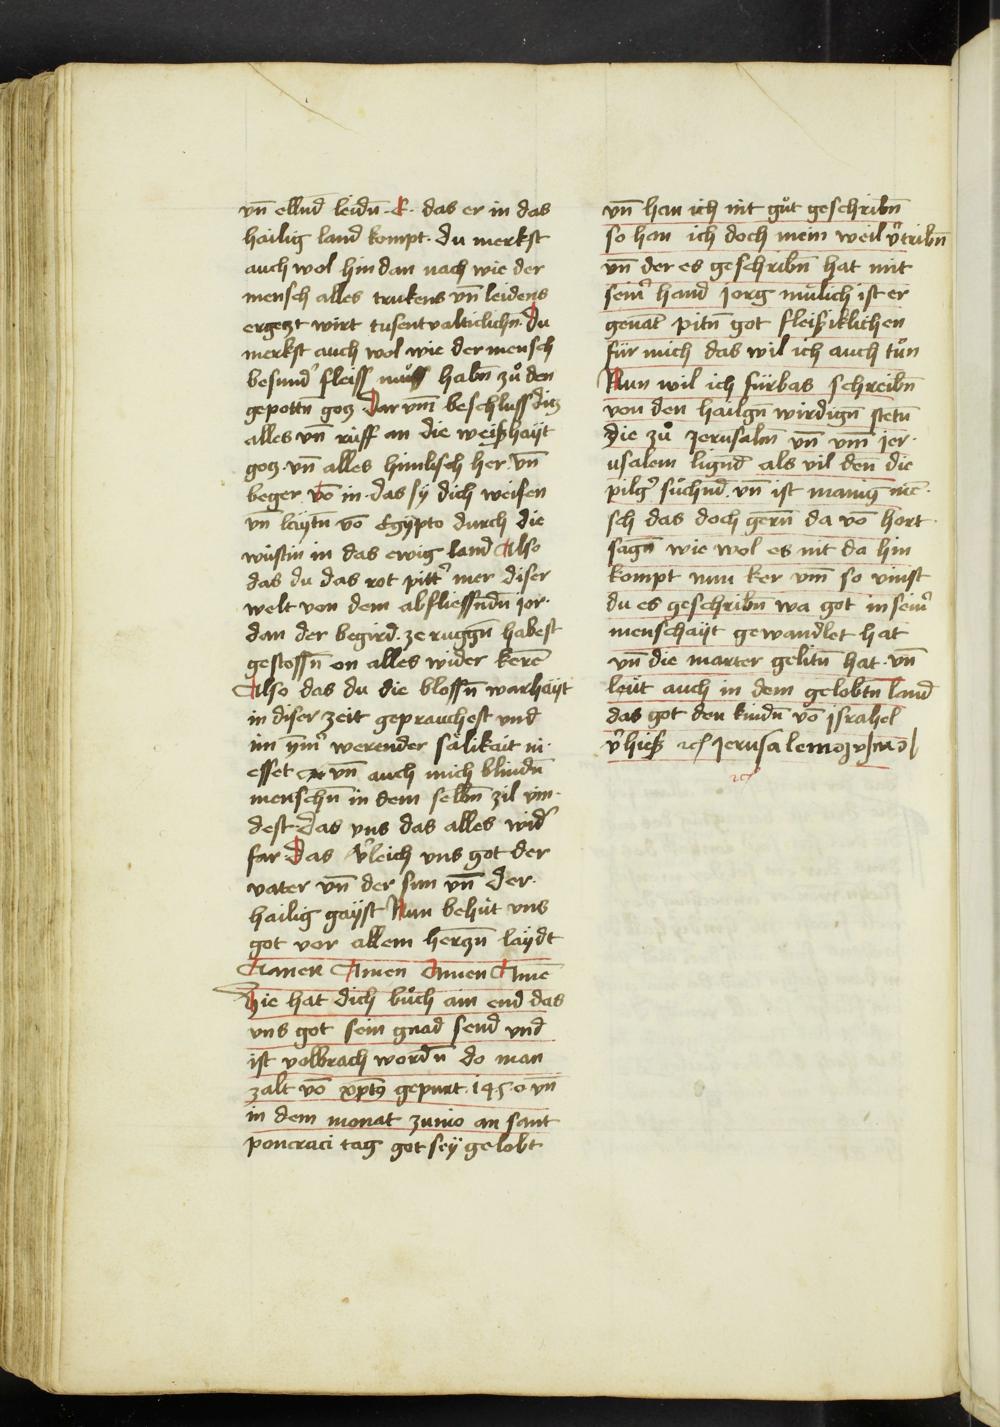 vn̄ ellnd̄ leidn̄ · E · das er in das
hailig land kompt · du merkst
auch wol hin dan nach wie der
mensch alles trukens vn̄ leidens
ergeczt wirt tusentvalticlichn̄ · Du
merkst auch wol wie der mensch
besund̓ fleiss muͦss habn̄ zuͦ den
gepottn gocz Dar vm̄ beschluss dicz
alles vn̄ ruͤff an die weißhaÿt
gocz · vn̄ alles himlisch her · vn̄
beger vō in · das sÿ dich weisen
vn̄ laÿtn̄ vō Egÿpto durch die
wuͤstin in das ewig land Also
das du das rot pitt̓ mer diser
welt von dem abfliessn̄dn̄ jor ·
dan der begird · ze ruggn̄ habest
gestossn̄ on alles wider kerē
Also das du die blossn̄ warhaÿt
in diser zeit geprauchest vnd
im ÿm̓ werender sälikait ni ·
esset vn̄ auch mich blindn̄
menschn̄ in dem selbn̄ zil vin ·
dest · Das vns das alles wid̓
far · Das v̓leich vns got der
vater vn̄ der sun vn̄ der ·
hailig gaÿst Nun behuͤt vns
got vor allem herczn̄ laÿdt
Amen Amen Amen Amē
Hie hat dich buͦch ain end das
vns got sein gnad send vnd
ist volbrach wordn̄ do man
zalt vō xpt9 gepurt · 1450 vn̄
in dem monat zunio an sant
poncraci tag got seÿ gelobt
vn̄ han ich nit guͦt geschribn̄
so han ich doch mein weil v̓tribn̄
vn̄ der es geschribn̄ hat mit
sein̓ hand jorg muͤlich ist er
genāt pitn̄ got fleißiklichen
für mich das wil ich auch tuͦn
Nun wil ich fürbas schreibn̄
von den hailgn̄ wirdign̄ stetn̄
die zuͦ jerusalm̄ vn̄ vm̄ jer ·
usalem lignd̄ als vil den̄ die
pilg̓ suͦchnd̄ vn̄ ist manig mē ·
sch das doch gern̄ da vō hort ·
sagn̄ wie wol es nit da hin
kompt nun ker vm̄ so vinst
du es geschribn̄ wa got in sein̓
menschaÿt gewandlet hat
vn̄ die marter gelitn̄ hat · vn̄
leüt auch in dem gelobtn̄ land
das got den kindn̄ vō jsrahel
v̓hieß jerusalem